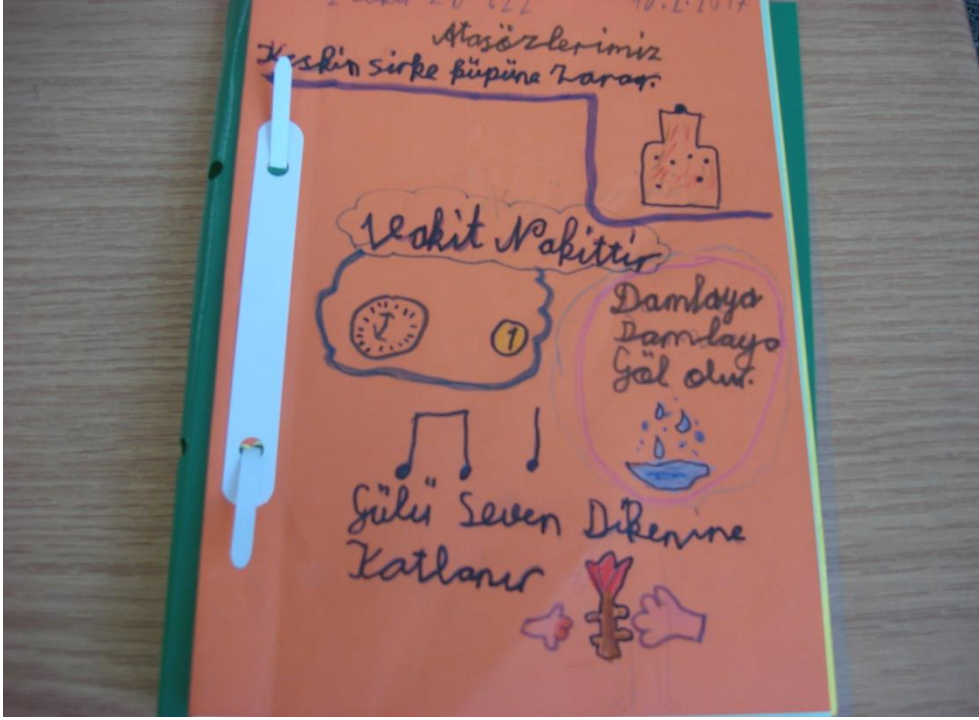 10.2.2017
Atasözlerimiz
Keskin sirke küpüne zarar.
Vakit Nakittir
1
Damlaya
Damlaya
Göl olur.
Gülü Seven Dikenine
Katlanır